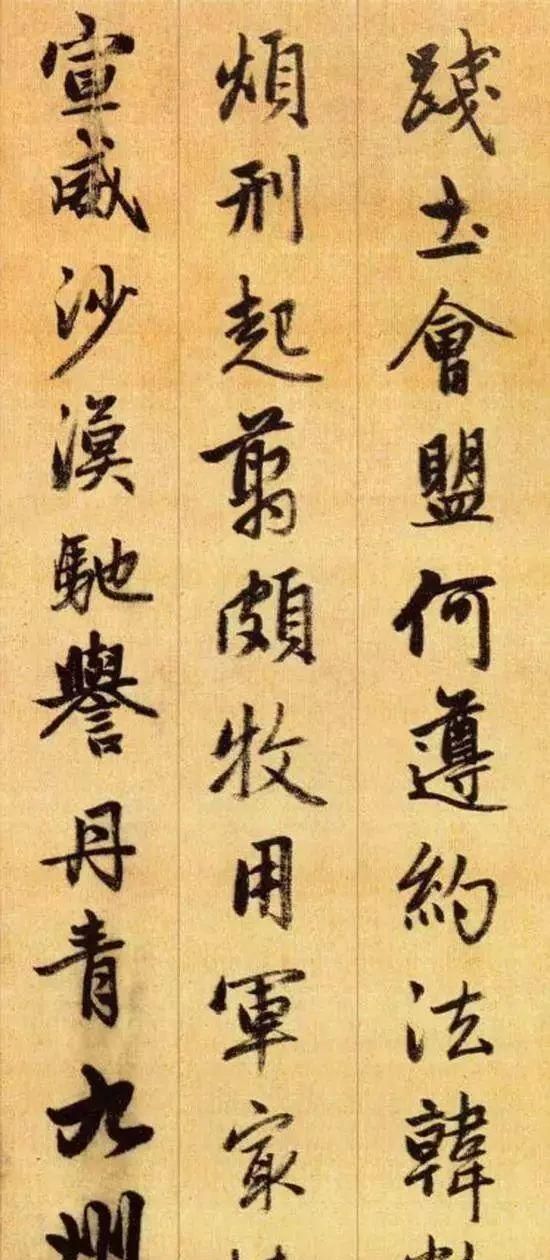 践土會盟何遵約法韓
煩刑起翦頗牧用軍㝡
宣威沙漠馳譽丹青九州